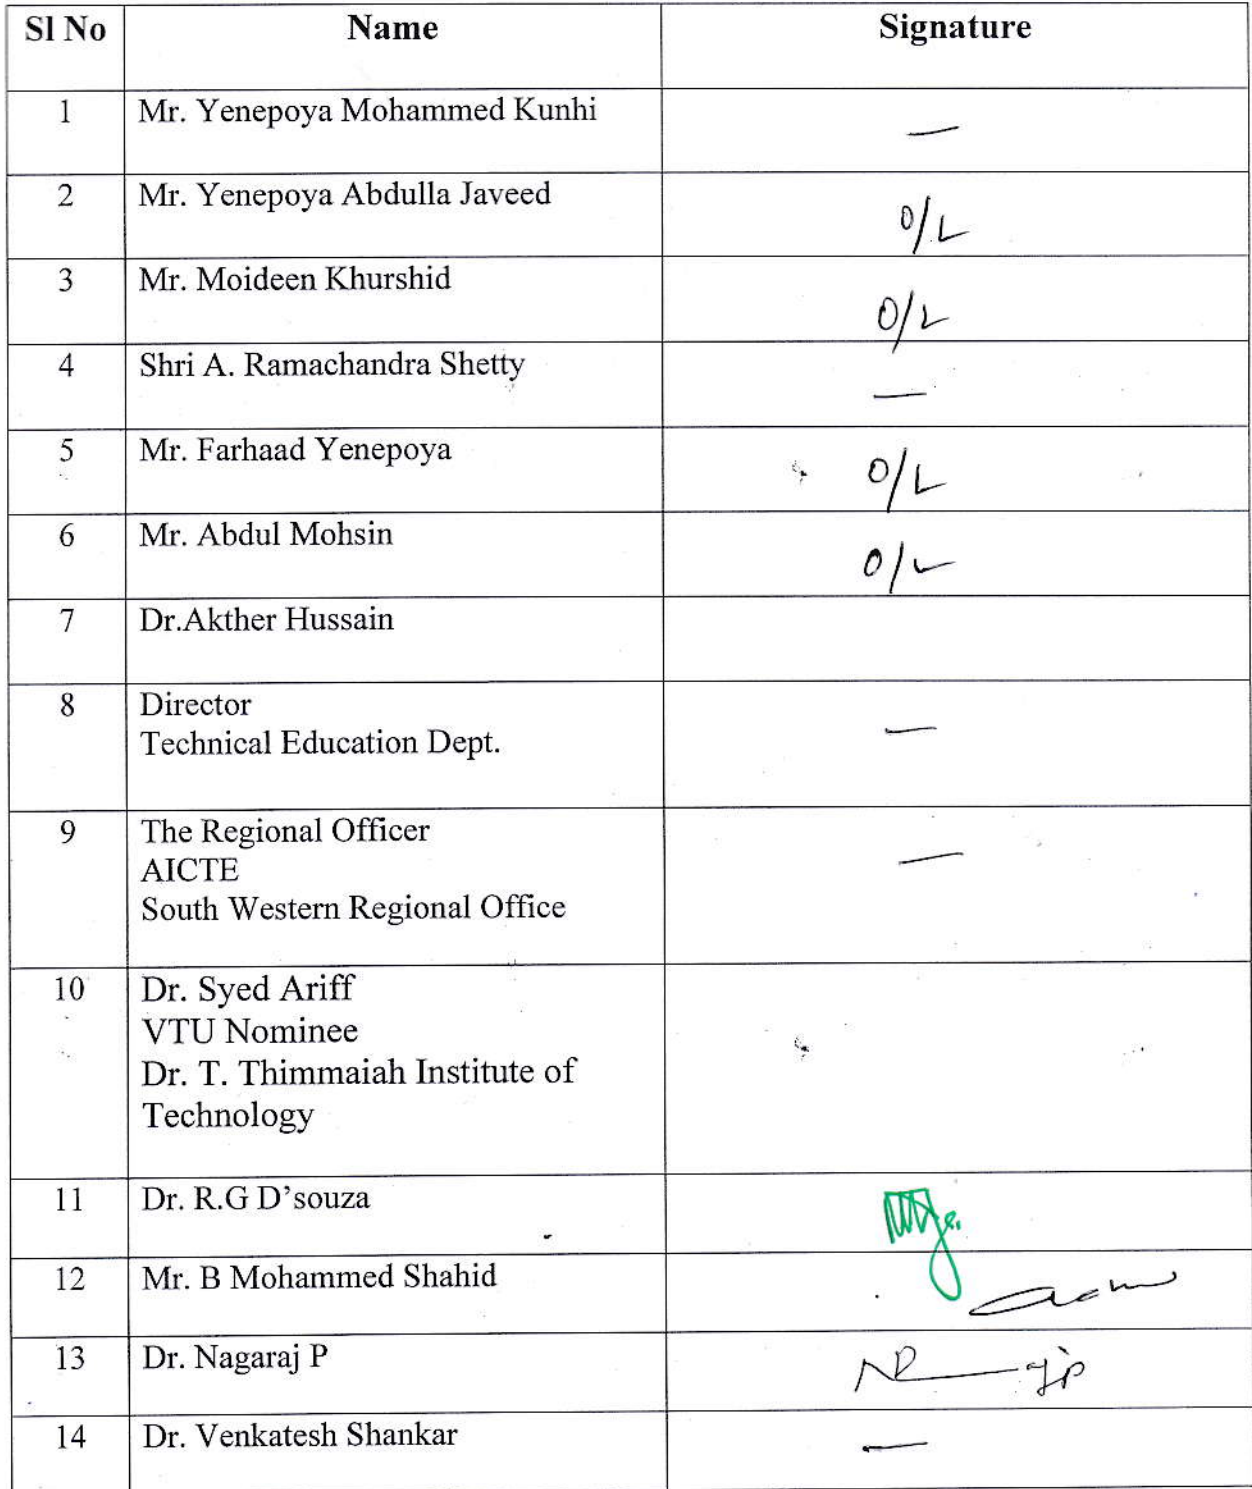 Sl No Name Signature
1 Mr. Yenepoya Mohammed Kunhi —
2 Mr. Yenepoya Abdulla Javeed O/L
3 Mr. Moideen Khurshid O/L
4 Shri A. Ramachandra Shetty —
5 Mr. Farhaad Yenepoya O/L
6 Mr. Abdul Mohsin O/L
7 Dr.Akther Hussain
8 Director —
Technical Education Dept.
9 The Regional Officer —
AICTE
South Western Regional Office
10 Dr. Syed Ariff
VTU Nominee
Dr. T. Thimmaiah Institute of
Technology
11 Dr. R.G D’souza
12 Mr. B Mohammed Shahid
13 Dr. Nagaraj P
14 Dr. Venkatesh Shankar —